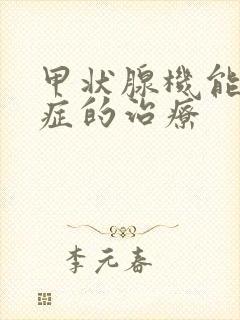 甲状腺機能
症的治療
李元春